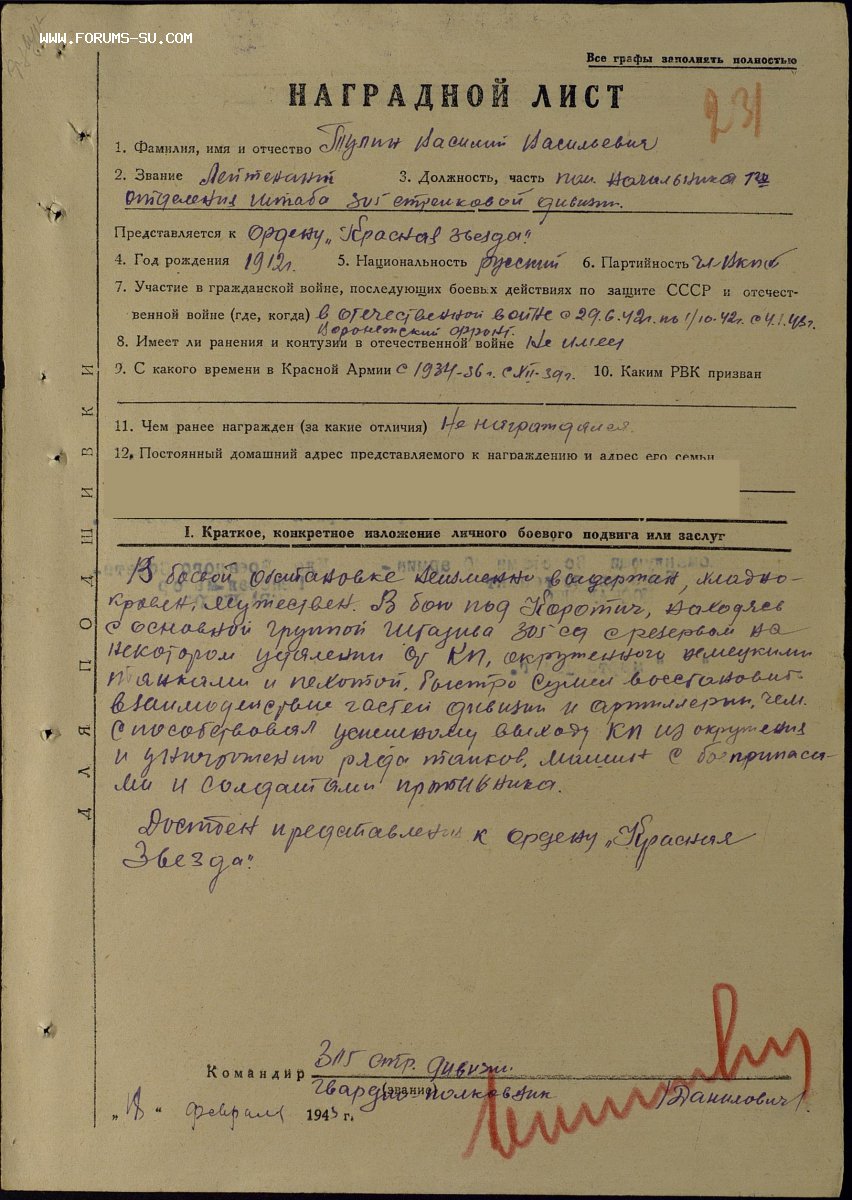 WWW.FORUMS-SU.COM
Все графы заполнять полностью
НАГРАДНОЙ ЛИСТ
231
1. Фамилия, имя и отчество Тупин Василий Васильевич
2. Звание Лейтенант 3. Должность, часть пом. начальника 1го
отделения штаба 305 стрелковой дивизии.
Представляется к Ордену „Красная Звезда"
4. Год рождения 1912г. 5. Национальность русский 6. Партийность чл. ВКП б
7. Участие в гражданской войне, последующих боевых действиях по защите СССР и отечест-
венной войне (где, когда) в отечественной войне с 29.6.42г. по 1/10-42г. с 4.1.43г.
Воронежский фронт.
8. Имеет ли ранения и контузии в отечественной войне Не имеет
9. С какого времени в Красной Армии с 1934-36г. с XII-39г. 10. Каким РВК призван
11. Чем ранее награжден (за какие отличия) Не награждался.
12. Постоянный домашний адрес представляемого к награждению и адрес его семьи
I. Краткое, конкретное изложение личного боевого подвига или заслуг
В боевой обстановке неизменно выдержан, хладно-
кровен, мужествен. В бою под Коротич, находясь
с основной группой Штадива 305 сд с резервом на
некотором удалении от КП, окруженного немецкими
танками и пехотой, быстро сумел восстановить
взаимодействие частей дивизии и артиллерии, чем
способствовал успешному выходу КП из окружения
и уничтожению ряда танков, машин с боеприпаса-
ми и солдатами противника.
Достоен представления к ордену „Красная
Звезда".
ДЛЯ ПОДШИВКИ
Командир 305 стр. дивизии
Гвардии полковник
(звание)
Данилович
„18" февраля 1943 г.